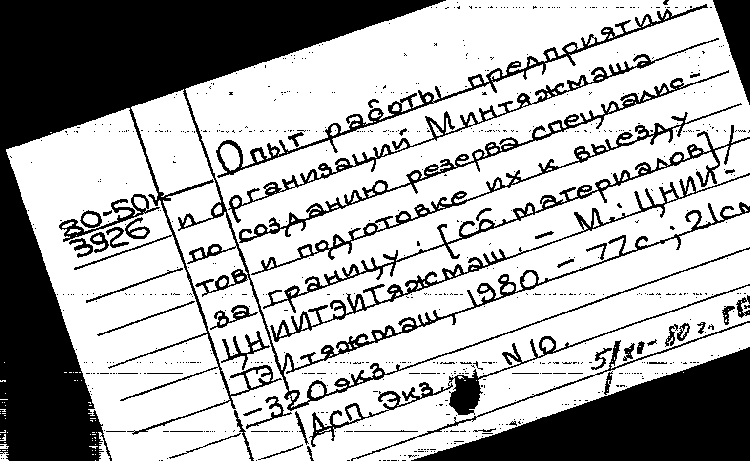 Опыт работы предприятий
и организаций Минтяжмаша
по созданию резерва специалис-
тов и подготовке их к выезду
за границу: [Сб. материалов] /
ЦНИИТЭИТяжмаш. – М.: ЦНИИ-
ТЭИтяжмаш, 1980. – 77с.; 21см
– 320 экз.
ДСП. Экз. N 10.
30-50к
3926
5/XI-80 г.